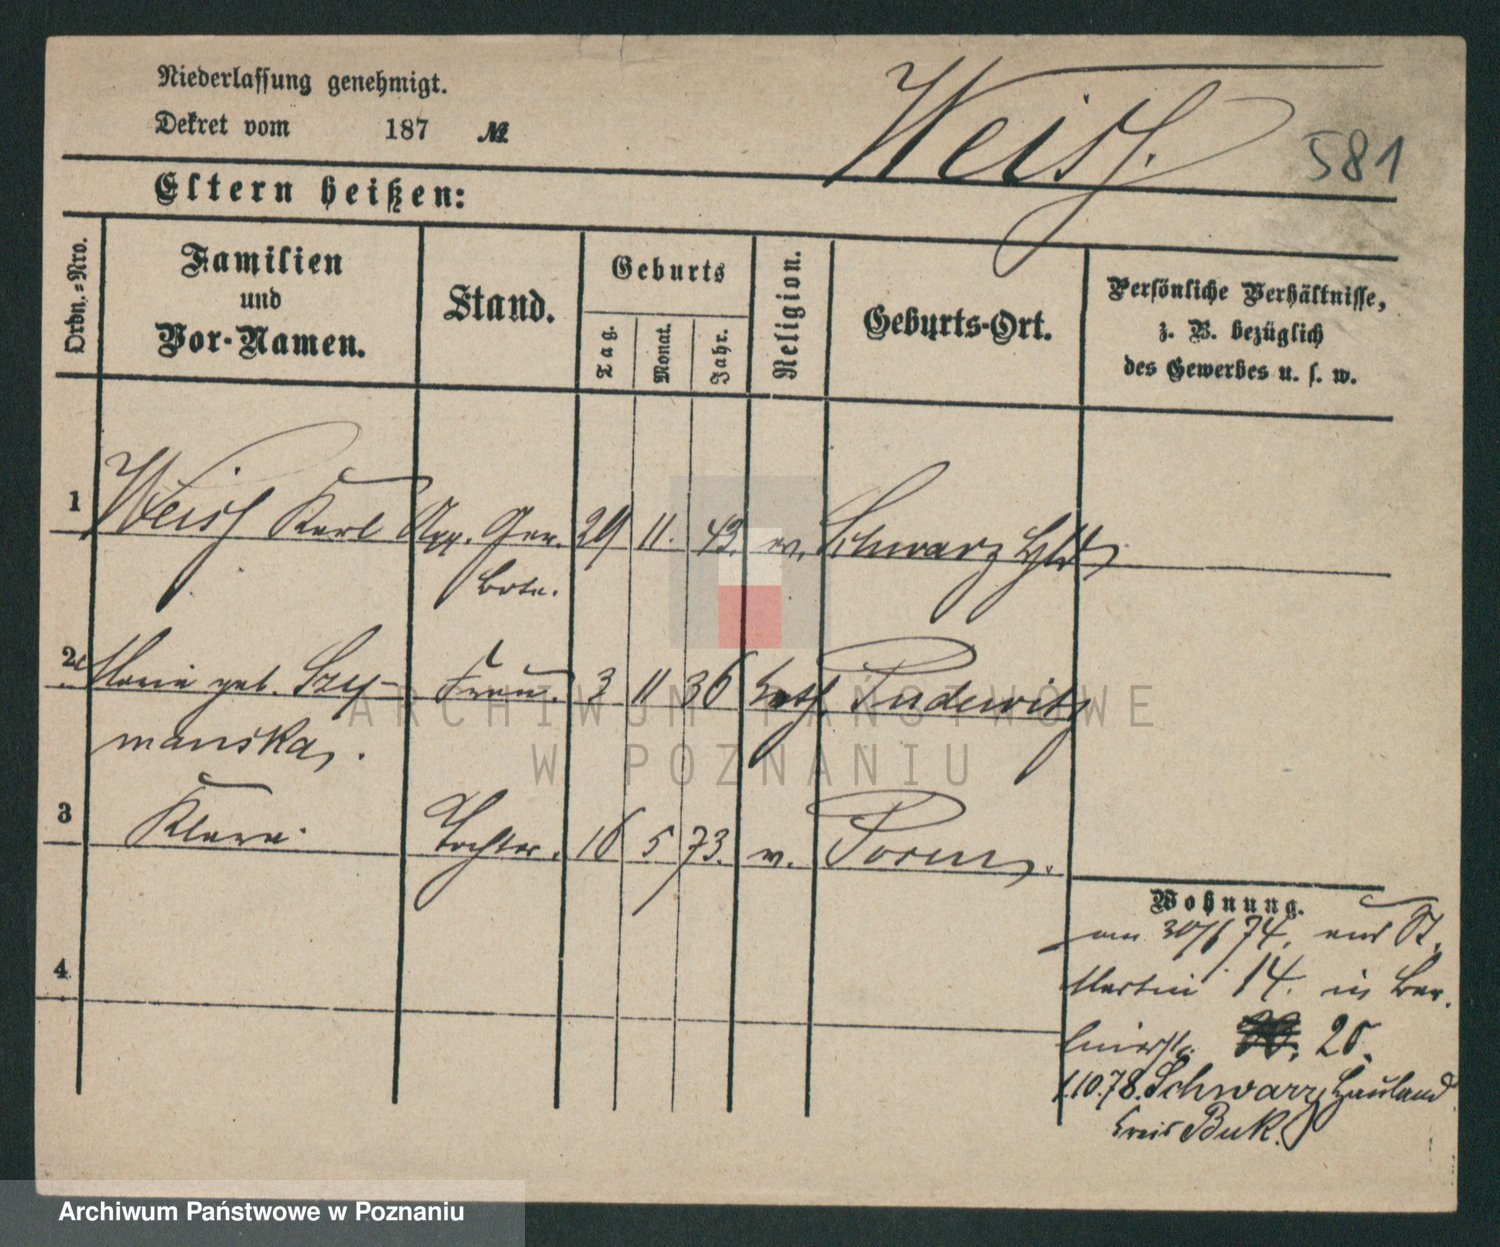 Niederlassung genehmigt.
Dekret vom 187 №
Weiss.
581
Eltern heißen:
Ordn.-Nro.
Familien
und
Vor-Namen.
Stand.
Geburts
Tag.
Monat.
Jahr.
Religion.
Geburts-Ort.
Persönliche Verhältnisse,
z. B. bezüglich
des Gewerbes u. s. w.
1 Weiss Karl App. Ger. 29 11. 43. ev. Schwarz Hld
bote.
2 Maria geb. Szy- Frau. 3 11 36 kath. Pudewitz
manska.
3 Klara. Tochter. 16 5 73. ev. Posen.
4
Wohnung.
am 30/6 74. aus St.
Martin 14. in Ber.
linerstr. 20.
1.10.78. Schwarz Hauland
Kreis Buk.
ARCHIWUM PAŃSTWOWE
W POZNANIU
Archiwum Państwowe w Poznaniu